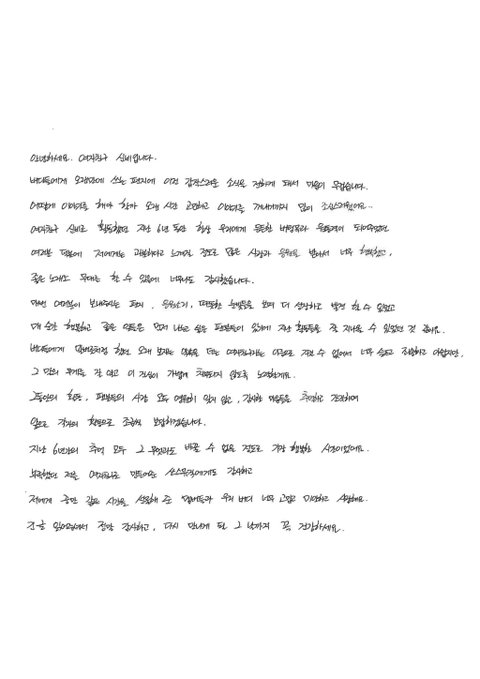 안녕하세요. 여자친구 신비입니다.
버디들에게 오랜만에 쓰는 편지에 이런 갑작스러운 소식을 전하게 돼서 마음이 무겁습니다.
어떻게 이야기를 해야 할까 오랜 시간 고민하고 이야기를 꺼내기까지 많이 조심스러웠어요..
여자친구 신비로 활동했던 지난 6년 동안 항상 우리에게 든든한 버팀목과 원동력이 되어주었던
여러분 덕분에 저에게는 과분하다고 느껴질 정도로 많은 사랑과 응원을 받아서 너무 행복했고,
좋은 노래와 무대를 할 수 있음에 너무나도 감사했습니다.
매번 여러분이 보내주시는 편지, 응원봉, 따뜻한 눈빛들을 보며 더 성장하고 발전 할 수 있었고
매 순간 행복하고 좋은 일들은 먼저 나누고 싶은 팬분들이 있기에 지난 활동들을 잘 지나올 수 있었던 것 같아요.
버디들에게 입버릇처럼 했던 오래 보자는 약속을 더는 여자친구라는 이름으로 지킬 수 없어서 너무 슬프고 죄송하고 아쉽지만,
그 말의 무게를 잘 알고 이 진심이 가볍게 치부되지 않도록 노력할게요.
그동안의 활동, 팬분들의 시간 모두 영원히 잊지 않고, 감사한 마음들을 추억하고 간직하며
앞으로 각자의 활동으로 조금씩 보답하겠습니다.
지난 6년간의 추억 모두 그 무엇과도 바꿀 수 없을 정도로 가장 행복한 시간이었어요.
부족했던 저를 여자친구로 만들어준 쏘스뮤직에게도 감사하고
저에게 좋은 값진 시간을 선물해 준 멤버들과 우리 버디 너무 고맙고 미안하고 사랑해요.
긴 글 읽어주셔서 정말 감사하고, 다시 만나게 될 그 날까지 꼭 건강하세요.